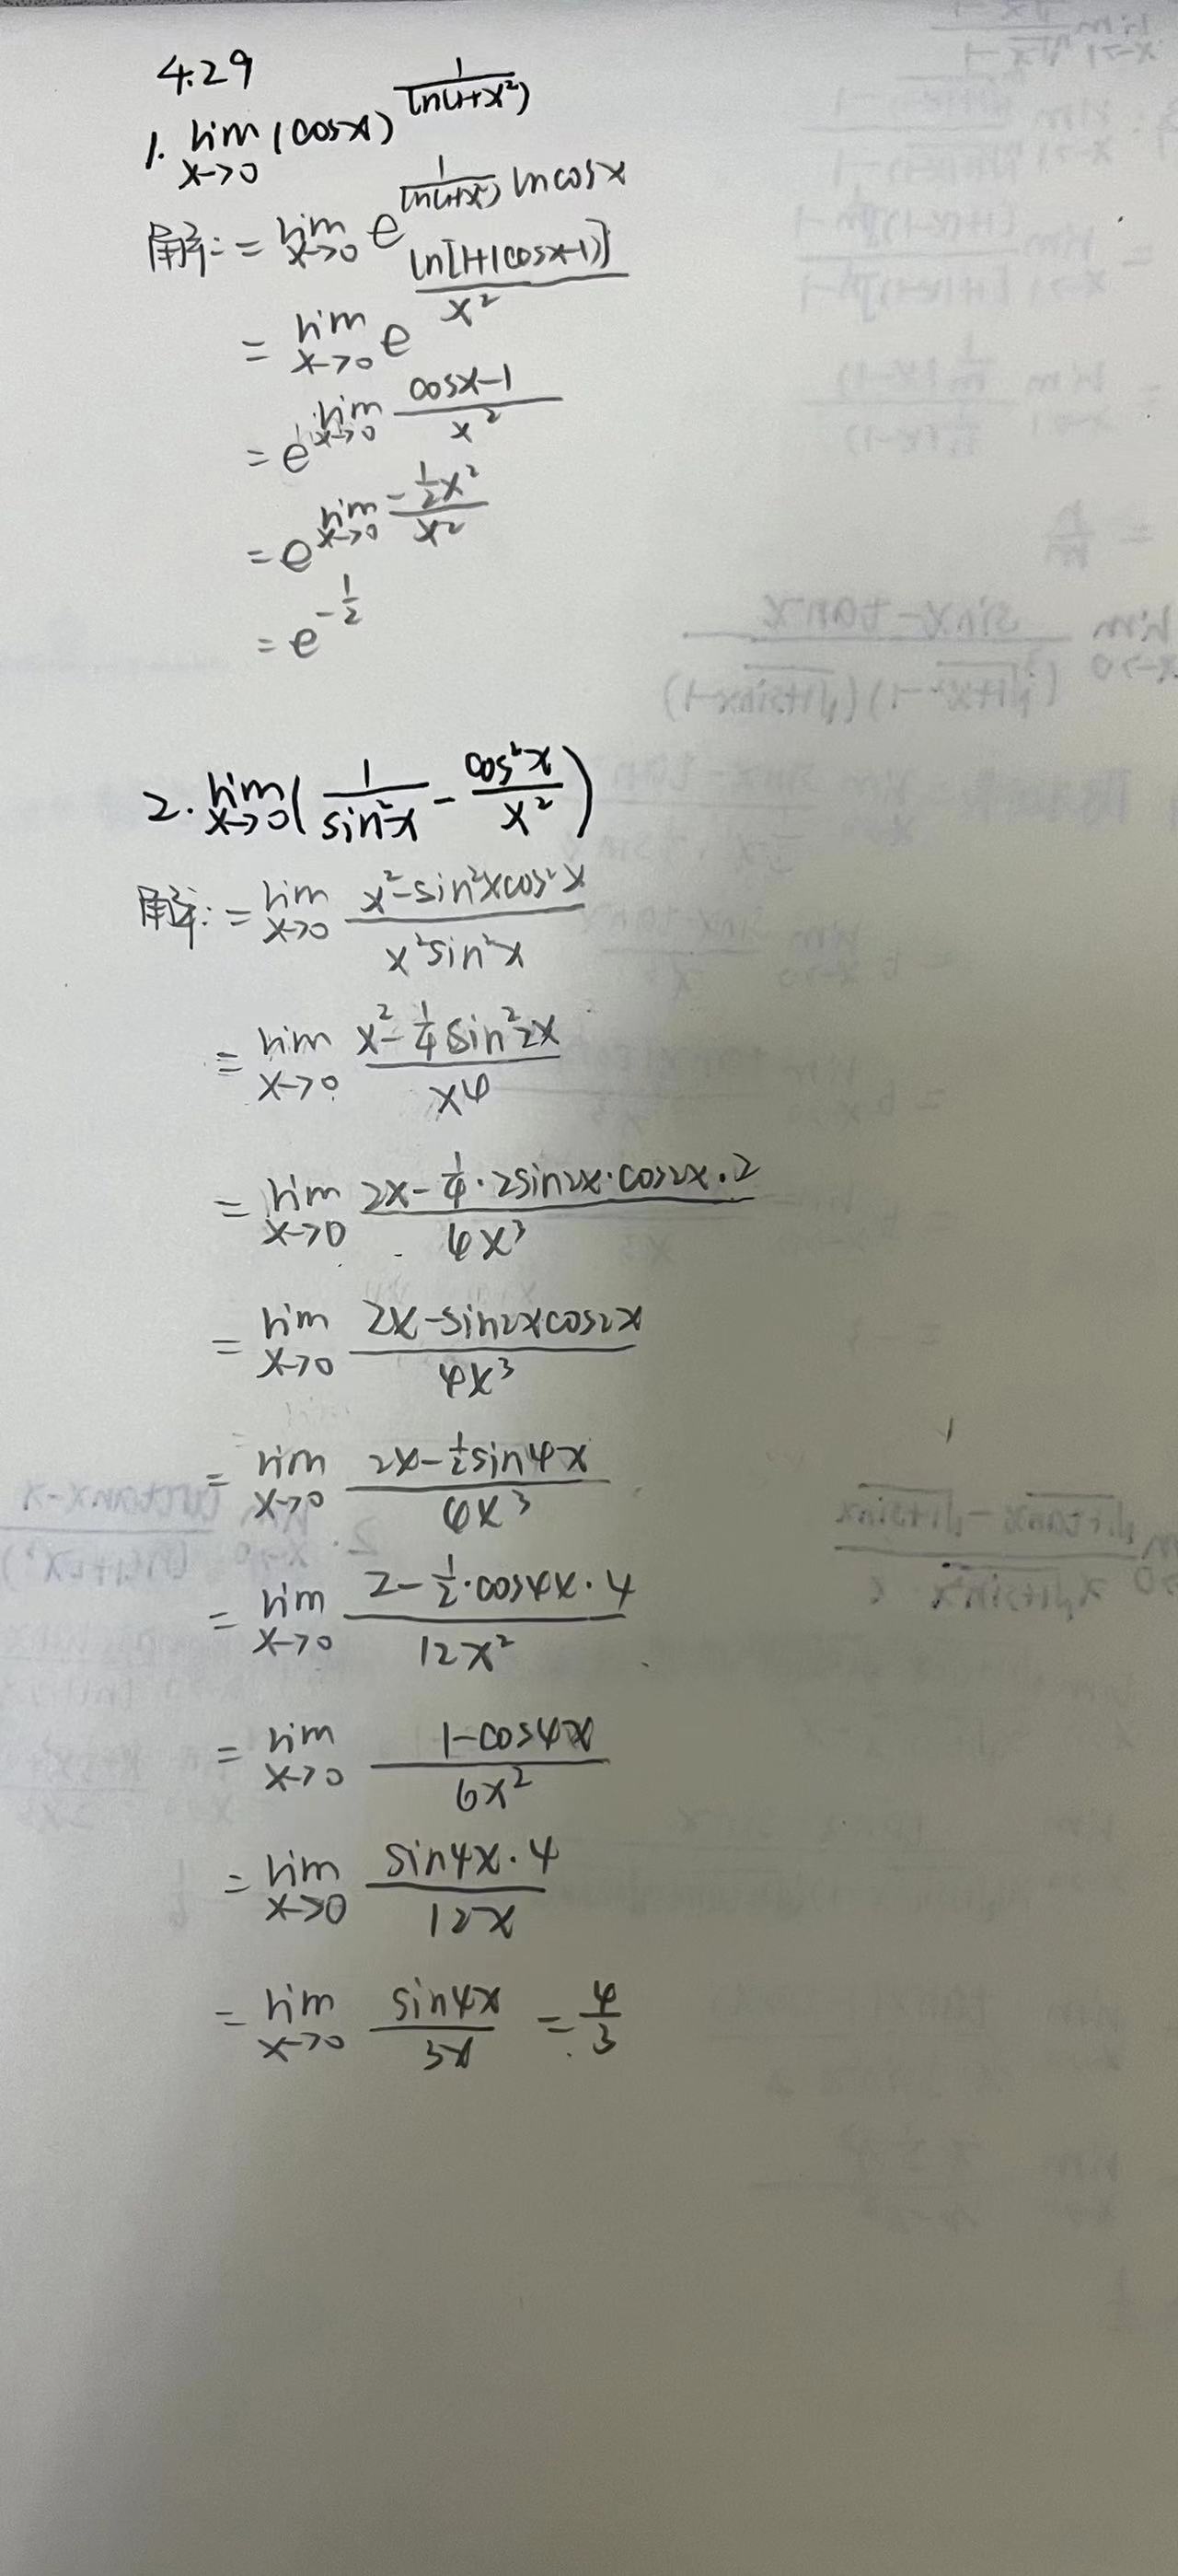 4.29
1. lim x→0 (cosx)^(1/ln(1+x²))
解: = lim x→0 e^(1/ln(1+x²) lncosx)
= lim x→0 e^(ln[1+(cosx-1)]/x²)
= e^(lim x→0 (cosx-1)/x²)
= e^(lim x→0 (-½x²)/x²)
= e^(-½)
2. lim x→0 (1/sin²x - cos²x/x²)
解: = lim x→0 (x²-sin²xcos²x)/(x²sin²x)
= lim x→0 (x²-¼sin²2x)/x⁴
= lim x→0 (2x-¼·2sin2x·cos2x·2)/(4x³)
= lim x→0 (2x-sin2xcos2x)/(4x³)
= lim x→0 (2x-½sin4x)/(4x³)
= lim x→0 (2-½·cos4x·4)/(12x²)
= lim x→0 (1-cos4x)/(6x²)
= lim x→0 (sin4x·4)/(12x)
= lim x→0 (sin4x)/(3x) = 4/3